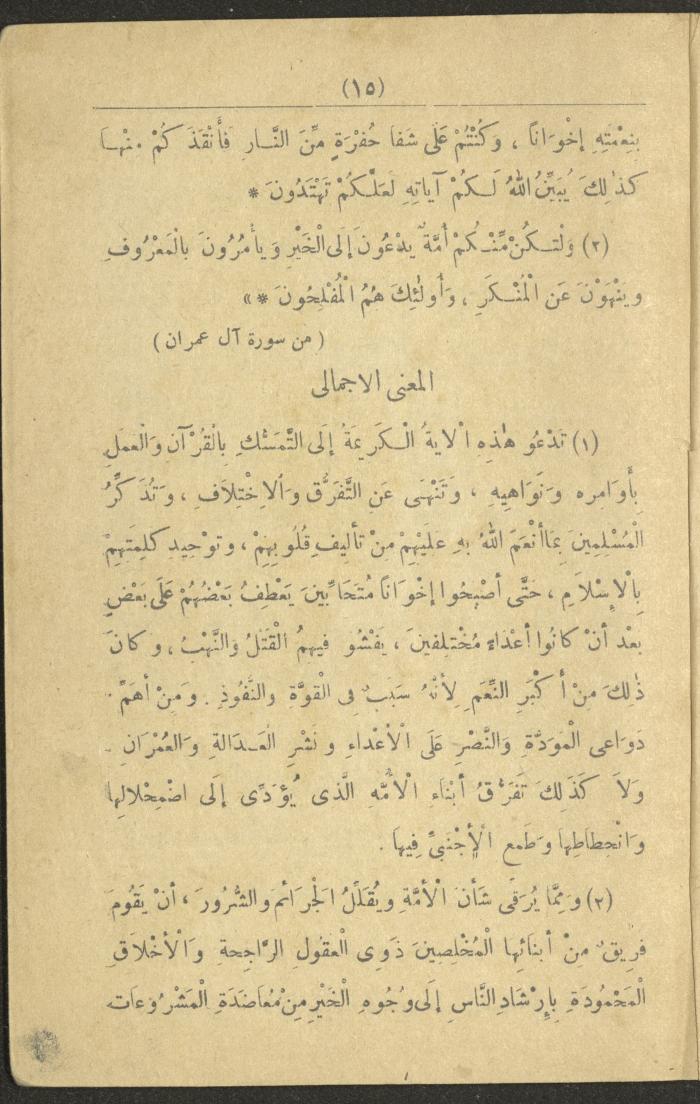 (١٥)
بِنِعْمَتِهِ إِخْوَانًا ، وَكُنْتُمْ عَلَى شَفَا حُفْرَةٍ مِّنَ النَّارِ فَأَنْقَذَكُمْ مِنْهَا
كَذٰلِكَ يُبَيِّنُ اللهُ لَكُمْ آيَاتِهِ لَعَلَّكُمْ تَهْتَدُونَ *
(٢) وَلْتَكُنْ مِّنْكُمْ أُمَّةٌ يَدْعُونَ إِلَى الْخَيْرِ وَيَأْمُرُونَ بِالْمَعْرُوفِ
وَيَنْهَوْنَ عَنِ الْمُنْكَرِ ، وَأُولٰئِكَ هُمُ الْمُفْلِحُونَ * »
( من سورة آل عمران )
المعنى الاجمالى
(١) تَدْعُو هٰذِهِ الْاٰيَةُ الْكَرِيمَةُ إِلَى التَّمَسُّكِ بِالْقُرْآنِ وَالْعَمَلِ
بِأَوَامِرِهِ وَنَوَاهِيهِ ، وَتَنْهَى عَنِ التَّفَرُّقِ وَالِاخْتِلَافِ ، وَتُذَكِّرُ
الْمُسْلِمِينَ بِمَا أَنْعَمَ اللهُ بِهِ عَلَيْهِمْ مِنْ تَأْلِيفِ قُلُوبِهِمْ ، وَتَوْحِيدِ كَلِمَتِهِمْ
بِالْإِسْلَامِ ، حَتَّى أَصْبَحُوا إِخْوَانًا مُتَحَابِّينَ يَعْطِفُ بَعْضُهُمْ عَلَى بَعْضٍ
بَعْدَ أَنْ كَانُوا أَعْدَاءً مُخْتَلِفِينَ ، يَفْشُو فِيهِمُ الْقَتْلُ وَالنَّهْبُ ، وَكَانَ
ذٰلِكَ مِنْ أَكْبَرِ النِّعَمِ لِأَنَّهُ سَبَبٌ فِى الْقُوَّةِ وَالنُّفُوذِ . وَمِنْ أَهَمِّ
دَوَاعِى الْمَوَدَّةِ وَالنَّصْرِ عَلَى الْأَعْدَاءِ وَنَشْرِ الْعَدَالَةِ وَالْعُمْرَانِ .
وَلَا كَذٰلِكَ تَفَرُّقُ أَبْنَاءِ الْأُمَّةِ الَّذِى يُؤَدِّى إِلَى اضْمِحْلَالِهَا
وَانْحِطَاطِهَا وَطَمَعِ الْأَجْنَبِىِّ فِيهَا .
(٢) وَمِمَّا يُرَقِّى شَأْنَ الْأُمَّةِ وَيُقَلِّلُ الْجَرَائِمَ وَالشُّرُورَ ، أَنْ يَقُومَ
فَرِيقٌ مِنْ أَبْنَائِهَا الْمُخْلِصِينَ ذَوِى الْعُقُولِ الرَّاجِحَةِ وَالْأَخْلَاقِ
الْمَحْمُودَةِ بِإِرْشَادِ النَّاسِ إِلَى وُجُوهِ الْخَيْرِ مِنْ مُعَاضَدَةِ الْمَشْرُوعَاتِ